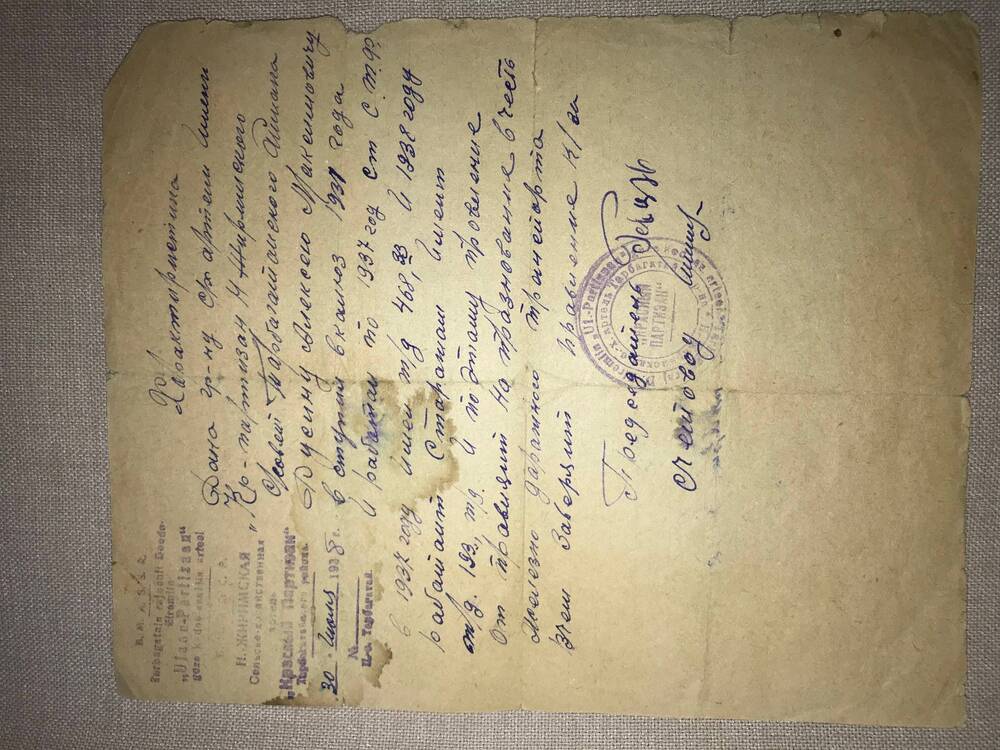 B. M. A. S. S. R.
"Ulaan-Partizaan"
Н. ЖИРИМСКАЯ
Сельско-хозяйственная
артель
"Красный Партизан"
Тарбагатайского района.
30 Июля 1938 г.
№
П-о. Тарбагатай.
Характиристика
Дана гр-ну с/х артели имени
"Кр-партизан Н Жиримского
Тарбагатайского Аймака
Дусину Алексею Максимовичу
в ступил в калхоз 1931 года
И работал по 1937 год ст с.т.ф.
в 1937 году Имел т/д 468,33 И 1938 году
работаит Старажам Имеит
т/д. 193, т/д. И поэтаму провление
От правляит На празнование в честь
железно даражного транспорта
в чем Заверяит правление К/за
Председатель
Счетовод
"КРАСНЫЙ
ПАРТИЗАН"